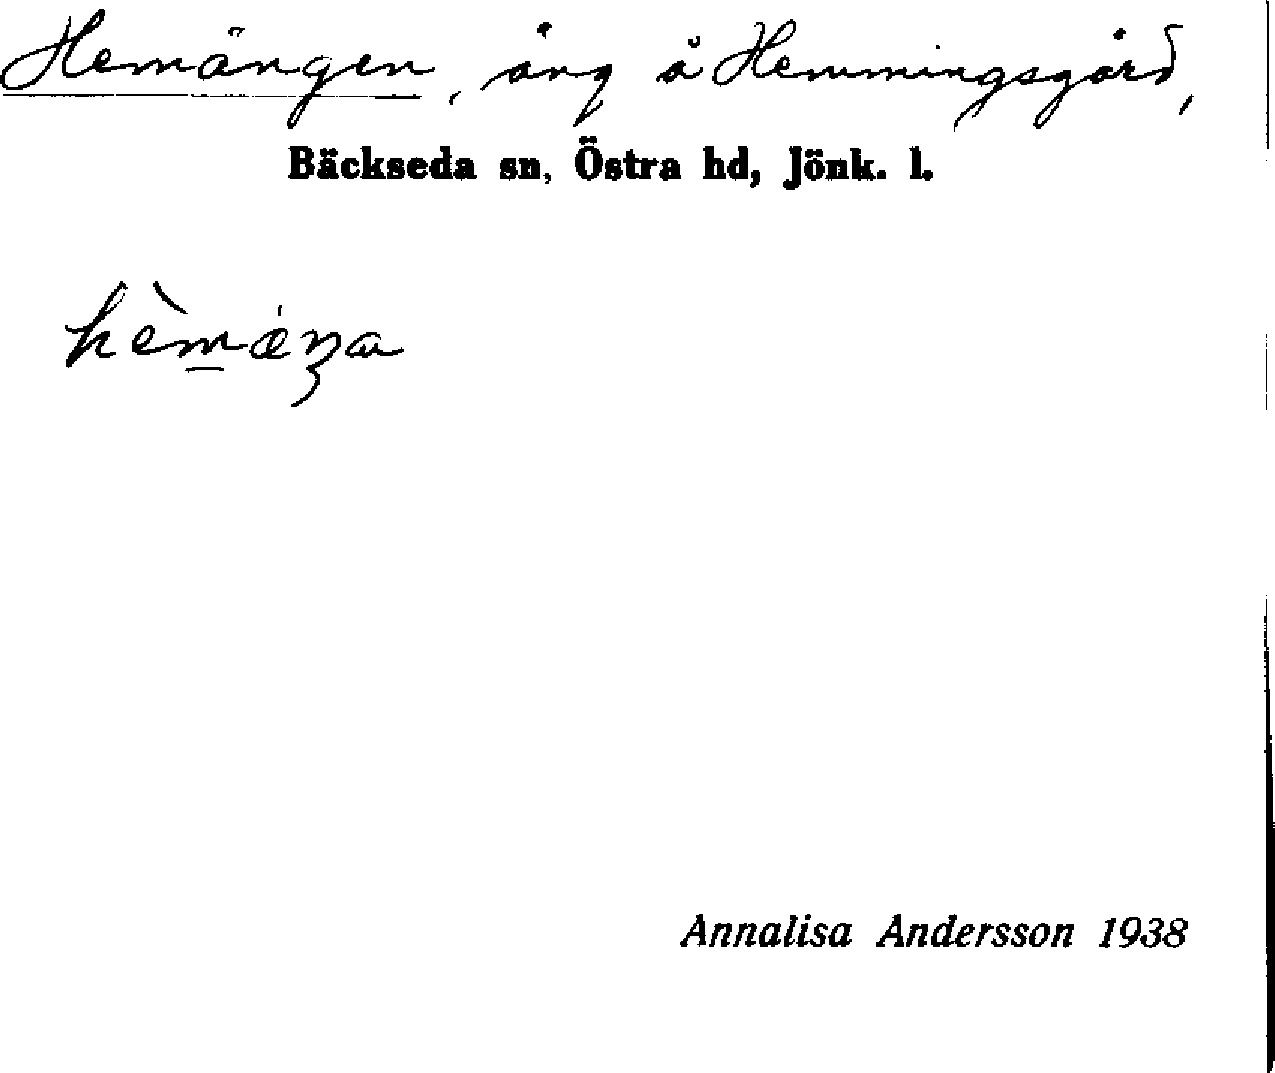 Hemängen, äng å Hemmingsgård,
Bäckseda sn, Östra hd, Jönk. l.
hèmǽŋa
Annalisa Andersson 1938